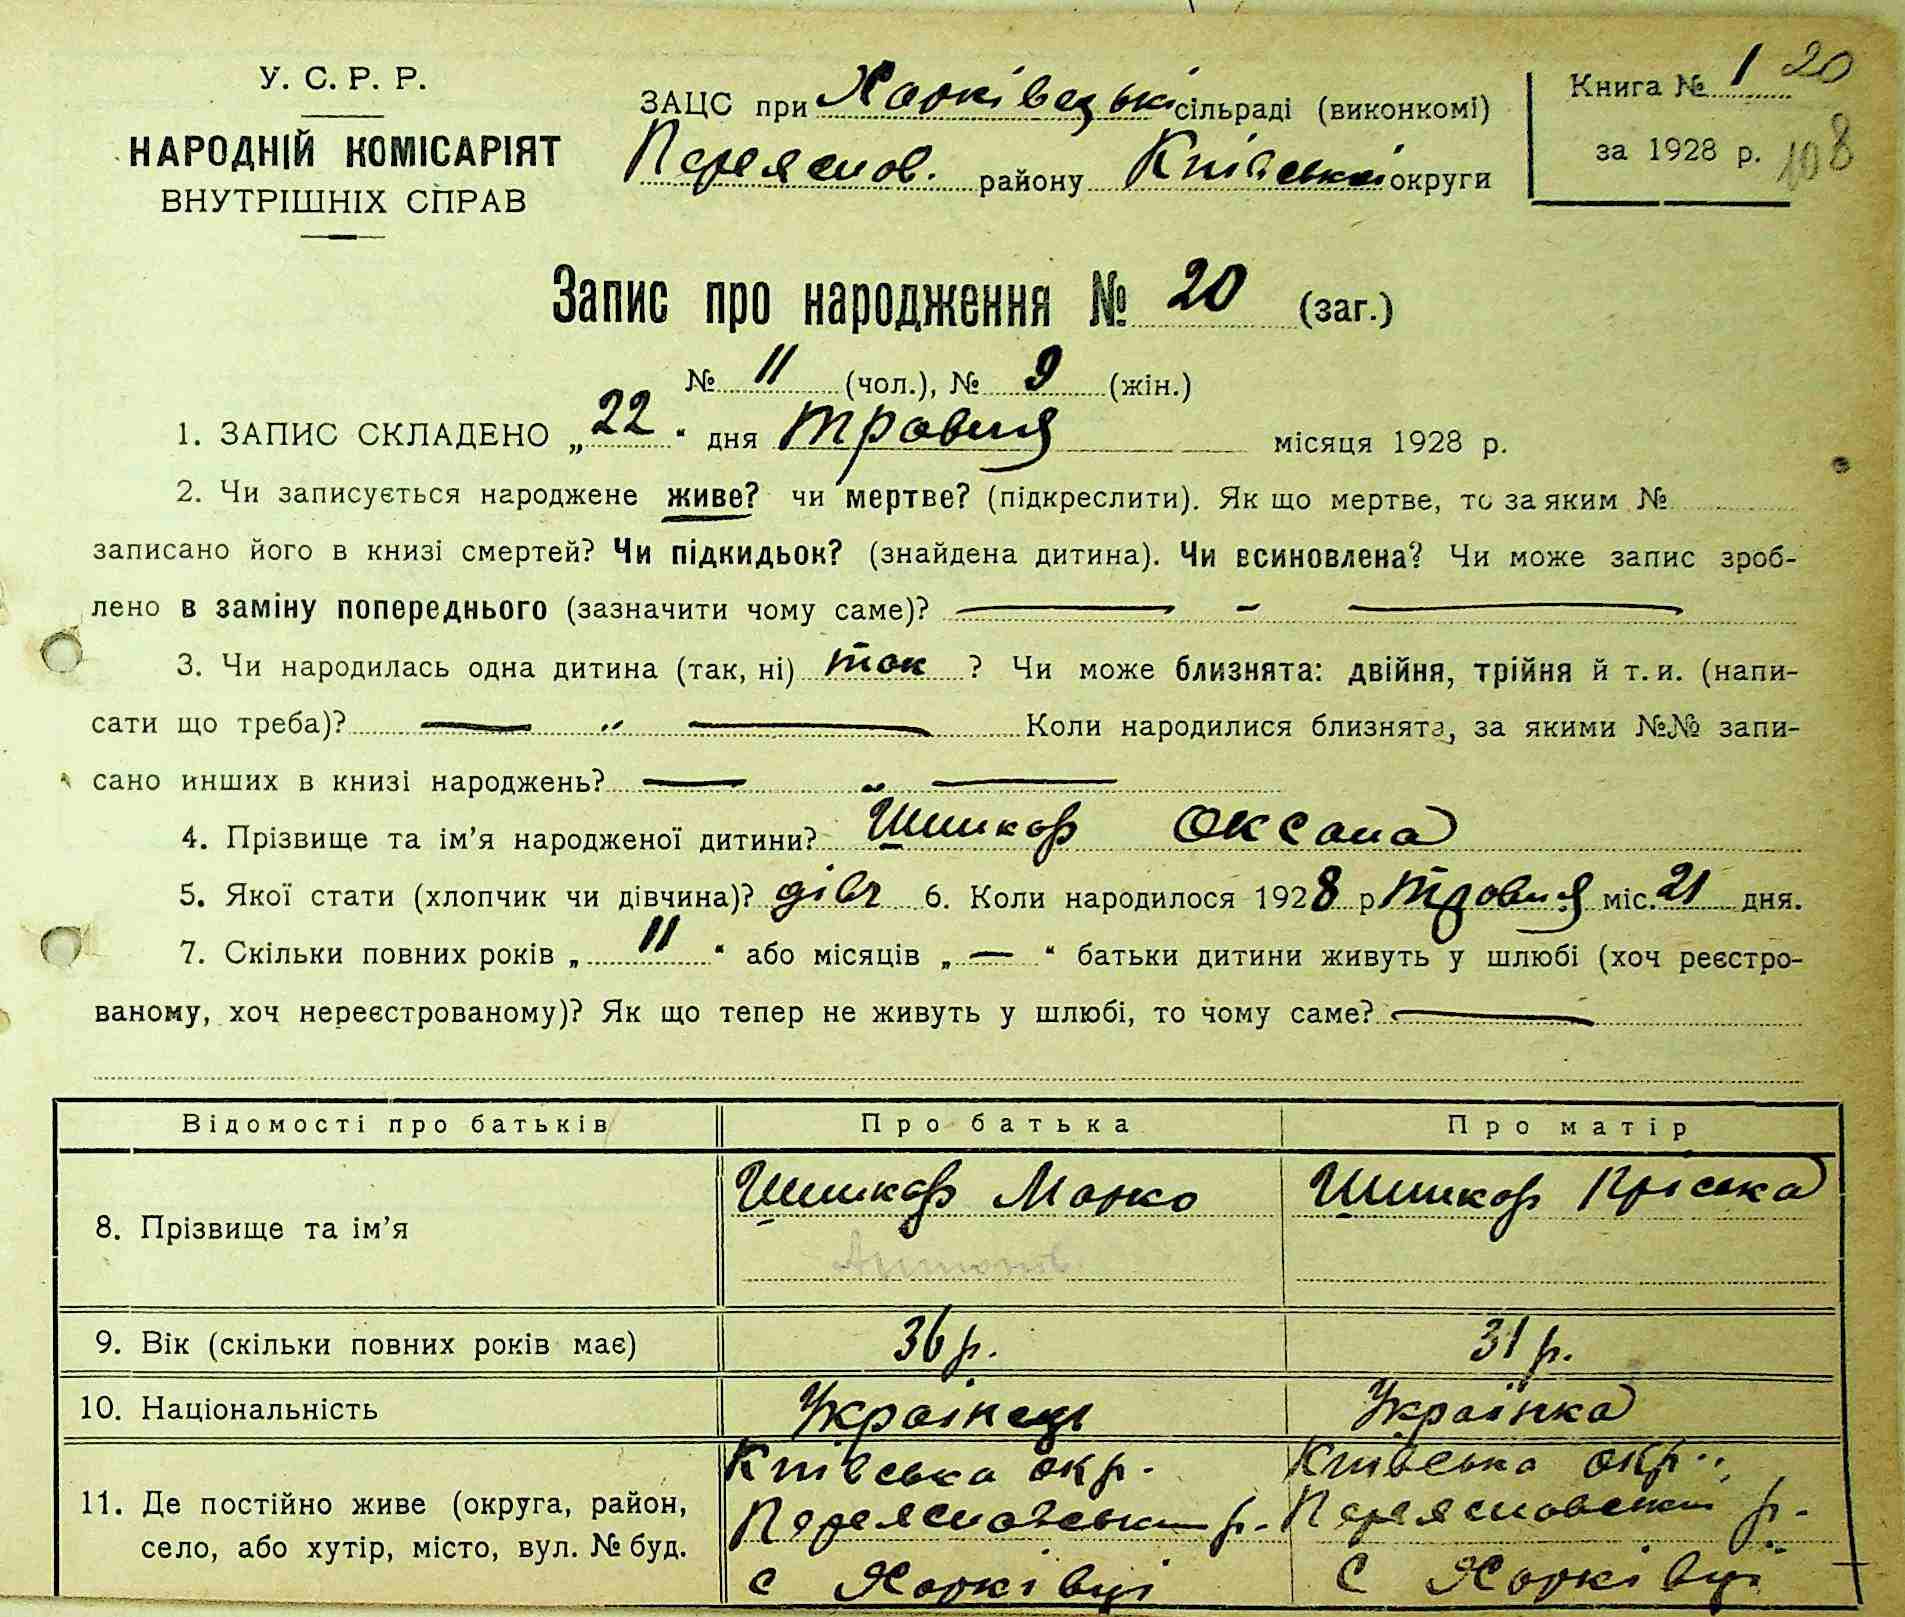 У. С. Р. Р.
НАРОДНІЙ КОМІСАРІЯТ
ВНУТРІШНІХ СПРАВ
ЗАЦС при Харківецькі сільраді (виконкомі)
Переяслов. району Київської округи
Книга № 1 20
за 1928 р. 108
Запис про народження № 20 (заг.)
№ 11 (чол.), № 9 (жін.)
1. ЗАПИС СКЛАДЕНО „22“ дня травня місяця 1928 р.
2. Чи записується народжене живе? чи мертве? (підкреслити). Як що мертве, то за яким №
записано його в книзі смертей? Чи підкидьок? (знайдена дитина). Чи всиновлена? Чи може запис зроб-
лено в заміну попереднього (зазначити чому саме)? — - —
3. Чи народилась одна дитина (так, ні) так ? Чи може близнята: двійня, трійня й т. и. (напи-
сати що треба)? — „ — Коли народилися близнята, за якими №№ запи-
сано инших в книзі народжень? — „ —
4. Прізвище та ім'я народженої дитини? Шишкар Оксана
5. Якої стати (хлопчик чи дівчина)? дівч 6. Коли народилося 1928 р травня міс. 21 дня.
7. Скільки повних років „ 11 “ або місяців „ — “ батьки дитини живуть у шлюбі (хоч реєстро-
ваному, хоч нереєстрованому)? Як що тепер не живуть у шлюбі, то чому саме? —
Відомості про батьків Про батька Про матір
8. Прізвище та ім'я Шишкар Марко Шишкар Пріська
Антонів
9. Вік (скільки повних років має) 36 р. 31 р.
10. Національність Українець Українка
11. Де постійно живе (округа, район, село, або хутір, місто, вул. № буд.
Київська окр. Київська окр.
Переяславський р. Переяславський р.
с Харківці с Харківці